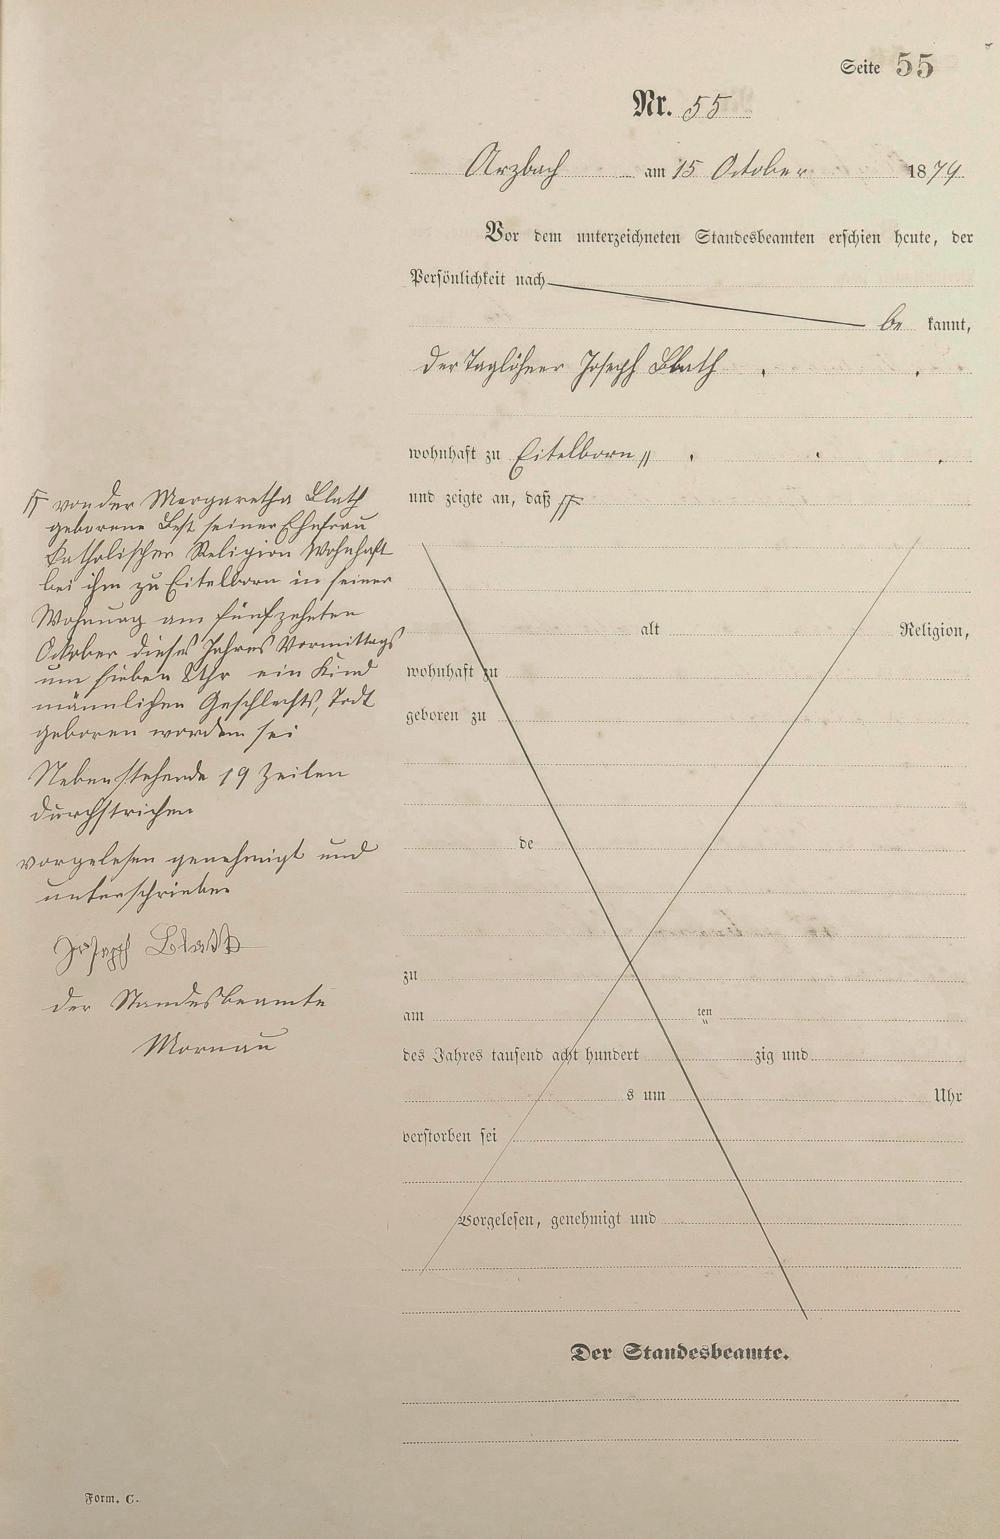 Seite 55
Nr. 55
Arzbach am 15 October 1879
Vor dem unterzeichneten Standesbeamten erschien heute, der
Persönlichkeit nach
be kannt,
der Taglöhner Joseph Blath
wohnhaft zu Eitelborn
und zeigte an, daß
von der Margaretha Blath
geborene Best seiner Ehefrau
Katholischer Religion Wohnhaft
bei ihm zu Eitelborn in seiner
Wohnung am fünfzehnten
Oktober dieses Jahres Vormittags
um sieben Uhr ein Kind
männlichen Geschlechts, Todt
geboren worden sei
Nebenstehende 19 Zeilen
durchstrichen
vorgelesen genehmigt und
unterschrieben
Joseph Blath
der Standesbeamte
Mornau
alt Religion,
wohnhaft zu
geboren zu
de
zu
am ten
des Jahres tausend acht hundert zig und
s um Uhr
verstorben sei
Vorgelesen, genehmigt und
Der Standesbeamte.
Form. C.